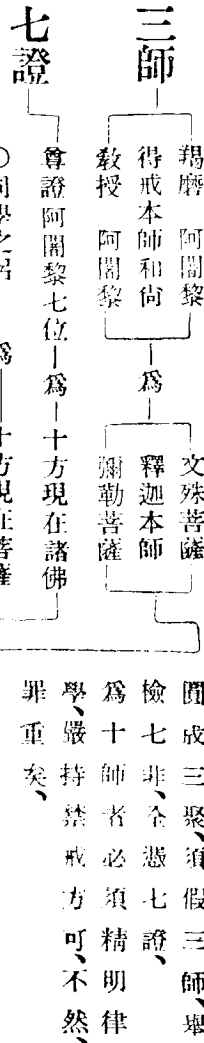 三師
羯磨 阿闍黎
得戒本師和尙
敎授 阿闍黎
爲
文殊菩薩
釋迦本師
彌勒菩薩
七證
尊證阿闍黎七位
爲
十方現在諸佛
圓成三聚、須假三師、舉
檢七非、全憑七證、
爲十師者必須精明律
學、嚴持禁戒方可、不然、
罪重矣、